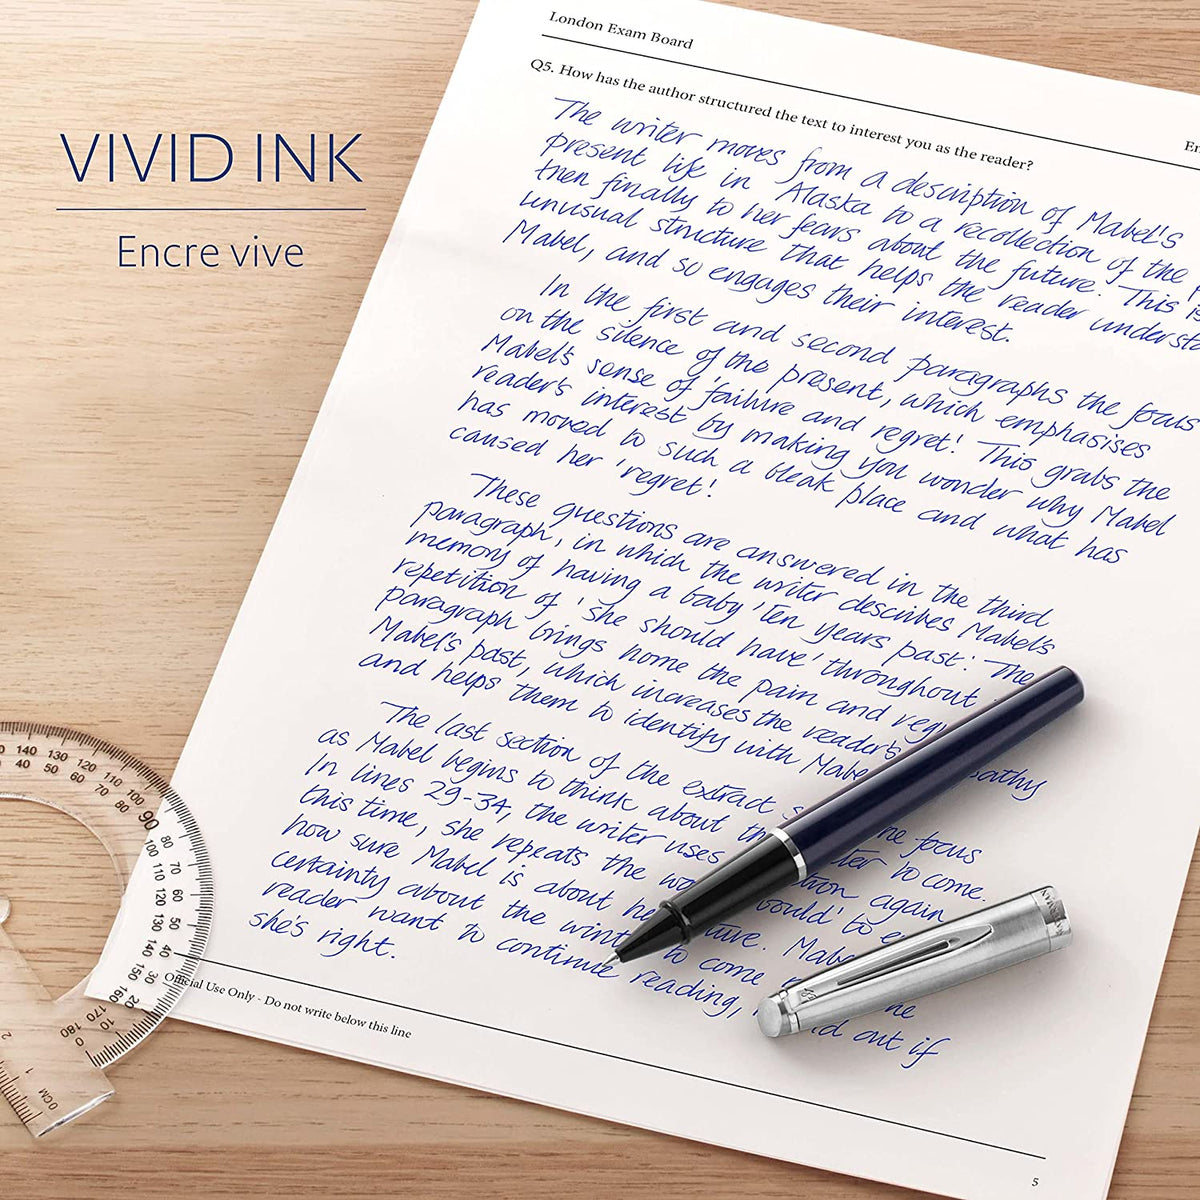 VIVID INK
Encre vive
London Exam Board
En
Q5. How has the author structured the text to interest you as the reader?
The writer moves from a description of Mabel's
present life in Alaska to a recollection of the
then finally to her fears about the future. This is
unusual structure that helps the reader understa
Mabel, and so engages their interest.
In the first and second paragraphs the focus
on the silence of the present, which emphasises
Mabel's sense of 'failure and regret! This grabs the
reader's interest by making you wonder why Mabel
has moved to such a bleak place and what has
caused her 'regret!
These questions are answered in the third
paragraph, in which the writer describes Mabel's
memory of having a baby 'ten years past'. The
repetition of 'she should have' throughout
paragraph brings home the pain and reg
Mabel's past, which increases the reader's pathy
and helps them to identify with Mabe
The last section of the extract s he focus
as Mabel begins to think about th ter to come.
In lines 29-34, the writer uses tion again
this time, she repeats the wo ould' to e
how sure Mabel is about he ture. Mabe
certainty about the wint to come he
reader want to continue reading, d out if
she's right.
Official Use Only - Do not write below this line
5
140 130 120 110 100 90 80 70 60 50 40 30 20 10 0
40 50 60 70 80 100 110 120 130 140 150 160 170 180
0CM 1 2